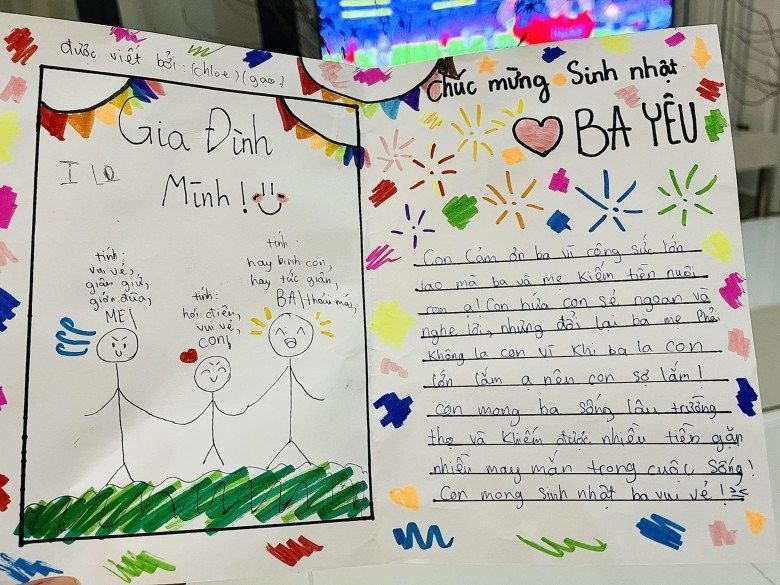 được viết bởi: (chloe) (gao)
Gia Đình
Mình!
I LO
tính:
vui vẻ,
giận giữ,
giỡn đũa,
ME\
tính:
hơi điêu,
vui vẻ,
con\
tính:
hay binh con,
hay tức giận,
BA\ thỏai mái,
Chúc mừng Sinh nhật
BA YÊU
Con Cảm ơn ba vì công sức lớn
lao mà ba và mẹ kiếm tiền nuôi
con ạ! Con hứa con sẻ ngoan và
nghe lời, nhưng đổi lại ba mẹ phải
không la con vì khi ba la con
lớn lắm ạ nên con sợ lắm!
con mong ba sống lâu trường
thọ và kiếm được nhiều tiền gặp
nhiều may mắn trong cuộc sống!
Con mong sinh nhật ba vui vẻ!